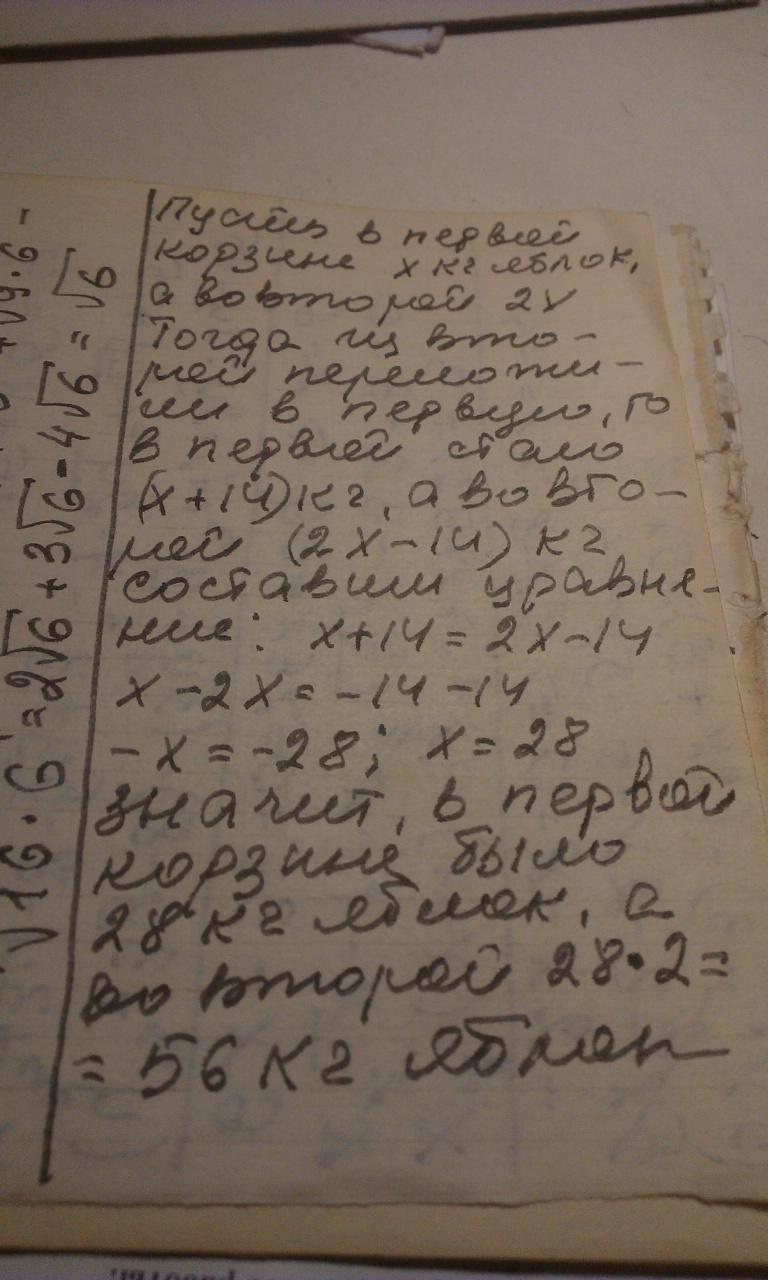 Пусть в первой
корзине x кг яблок,
а во второй 2x
Тогда из вто-
рой переложи-
ли в первую, то
в первой стало
(x+14)кг, а во вто-
рой (2x-14) кг
составим уравне-
ние: x+14=2x-14
x-2x=-14-14
-x=-28; x=28
значит, в первой
корзине было
28 кг яблок, а
во второй 28•2=
= 56 кг яблок
√16·6=2√6+3√6-4√6=√6
√9·6-